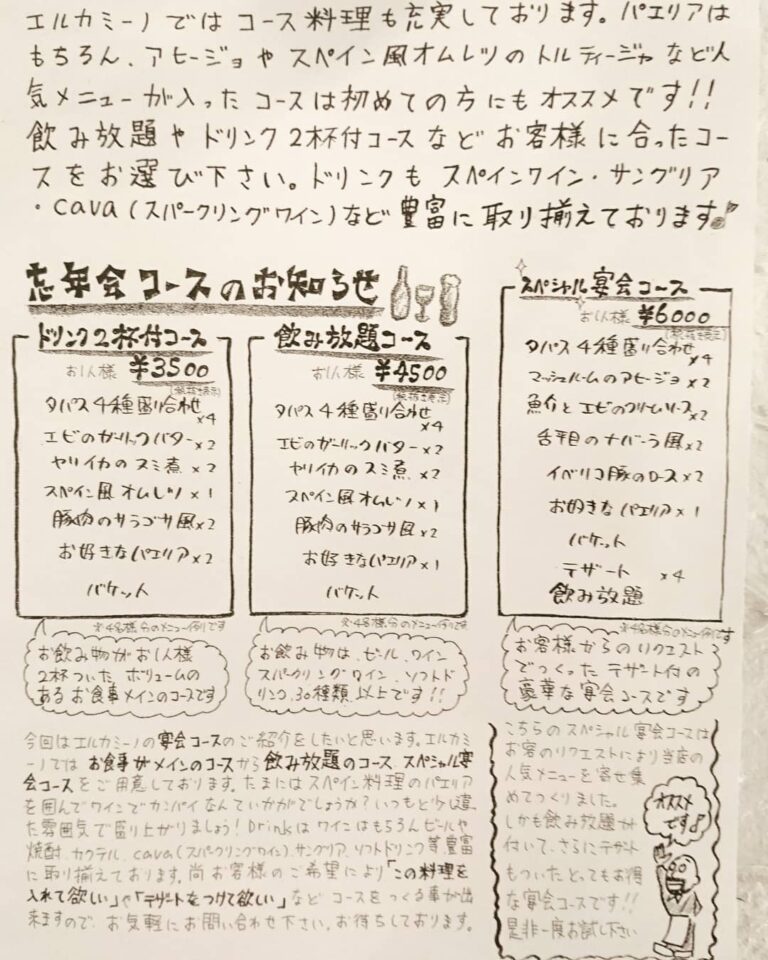 エルカミーノではコース料理も充実しております。パエリアは
もちろん、アヒージョやスペイン風オムレツのトルティージャなど人
気メニューが入ったコースは初めての方にもオススメです!!
飲み放題やドリンク2杯付コースなどお客様に合ったコー
スをお選び下さい。ドリンクもスペインワイン・サングリア
・cava(スパークリングワイン)など豊富に取り揃えております♪
忘年会コースのお知らせ
ドリンク2杯付コース
お1人様 ¥3500
(税抜表示)
タパス4種盛り合わせ
×4
エビのガーリックバター×2
ヤリイカのスミ煮×2
スペイン風オムレツ×1
豚肉のサラゴサ風×2
お好きなパエリア×2
バケット
※4名様分のメニュー例です
お飲み物がお1人様
2杯ついた、ボリュームの
あるお食事メインのコースです
飲み放題コース
お1人様 ¥4500
(税抜表示)
タパス4種盛り合わせ
×4
エビのガーリックバター×2
ヤリイカのスミ煮×2
スペイン風オムレツ×1
豚肉のサラゴサ風×2
お好きなパエリア×1
バケット
※4名様分のメニュー例です
お飲み物は、ビール、ワイン
スパークリングワイン、ソフトド
リンク、30種類以上です!!
スペシャル宴会コース
お1人様 ¥6000
(税抜表示)
タパス4種盛り合わせ
×4
マッシュルームのアヒージョ×2
魚介とエビのクリームソース×2
舌平目のナバーラ風×2
イベリコ豚のロース×2
お好きなパエリア×1
バケット
デザート ×4
飲み放題
※4名様分のメニュー例です
お客様からのリクエスト
でつくったデザート付の
豪華な宴会コースです
今回はエルカミーノの宴会コースのご紹介をしたいと思います。エルカミ
ーノではお食事がメインのコースから飲み放題のコース、スペシャル宴
会コースをご用意しております。たまにはスペイン料理のパエリア
を囲んでワインでカンパイなんていかがでしょうか?いつもと少し違っ
た雰囲気で盛り上がりましょう!Drinkはワインはもちろんビールや
焼酎、カクテル、cava(スパークリングワイン)、サングリア、ソフトドリンク等豊富
に取り揃えております。尚お客様のご希望により「この料理を
入れて欲しい」や「デザートをつけて欲しい」などコースをつくる事が出
来ますので、お気軽にお問い合わせ下さい。お待ちしております。
こちらのスペシャル宴会コースは
お客のリクエストにより当店の
人気メニューを寄せ集
めてつくりました。
しかも飲み放題が
付いて、さらにデザート
もついたとってもお得
な宴会コースです!!
是非一度お試し下さい
オススメ
です♪